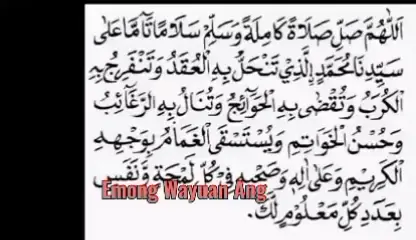 اَللّٰهُمَّ صَلِّ صَلَاةً كَامِلَةً وَسَلِّمْ سَلَامًا تَآمًّا عَلٰى
سَيِّدِنَا مُحَمَّدِ الَّذِيْ تَنْحَلُّ بِهِ الْعُقَدُ وَتَنْفَرِجُ بِهِ
الْكُرَبُ وَتُقْضٰى بِهِ الْحَوَآئِجُ وَتُنَالُ بِهِ الرَّغَآئِبُ
وَحُسْنُ الْخَوَاتِمِ وَيُسْتَسْقَى الْغَمَامُ بِوَجْهِهِ
الْكَرِيْمِ وَعَلٰى اٰلِهِ وَصَحْبِهِ فِيْ كُلِّ لَمْحَةٍ وَّنَفَسٍ
Emong Wayuan Ang
بِعَدَدِ كُلِّ مَعْلُوْمٍ لَّكَ.